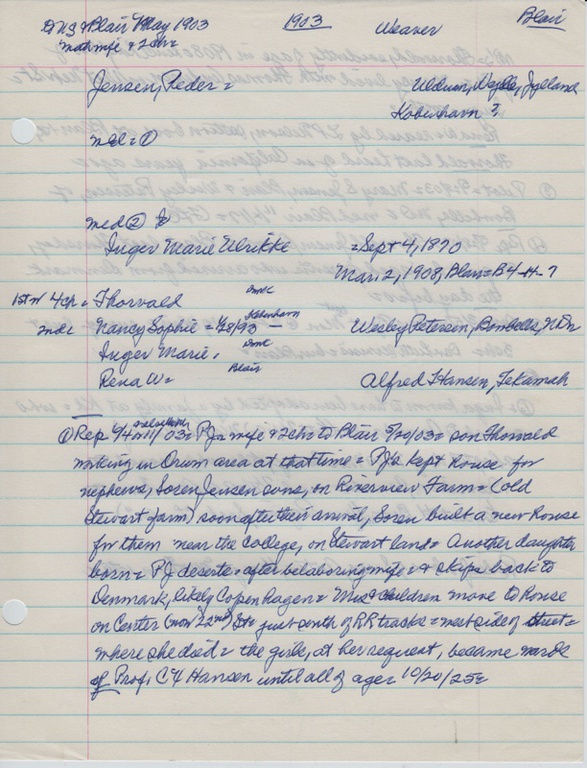 & Blair May 1903 1903 Weaver Blair
with wife & 2 chr =
Jensen, Peder = Jylland
Kobenhavn ?
md = ①
md ② to
Inger Marie Ulrikke = Sept 4, 1870
Mar. 2, 1908, Blair = B4-H-7
1st w 4 ch = Thorvald Dmk
Dmk Nancy Sophie = 1/28/93 — Kobenhavn Wesley Petersen, N D =
Inger Marie, Dmk
Rena W = Blair Alfred Hansen, Tekamah
① Rep 11/03 = PJ = wife & 2 chr to Blair 5/20/03 = son Thorvald
working in Orum area at that time = PJ's kept house for
nephews, Soren Jensen sons, on Riverview Farm = (old
Stewart farm) soon after their arrival, Soren built a new house
for them near the college, on Stewart land = Another daughter
born = PJ deserts = after belaboring wife = & skips back to
Denmark, likely Copenhagen = Mrs & children move to house
on Center (now 22nd) St = just south of RR tracks = west side of street =
where she died = the girls, at her request, became wards
of Prof. C X Hansen until all of age = 10/20/25 =